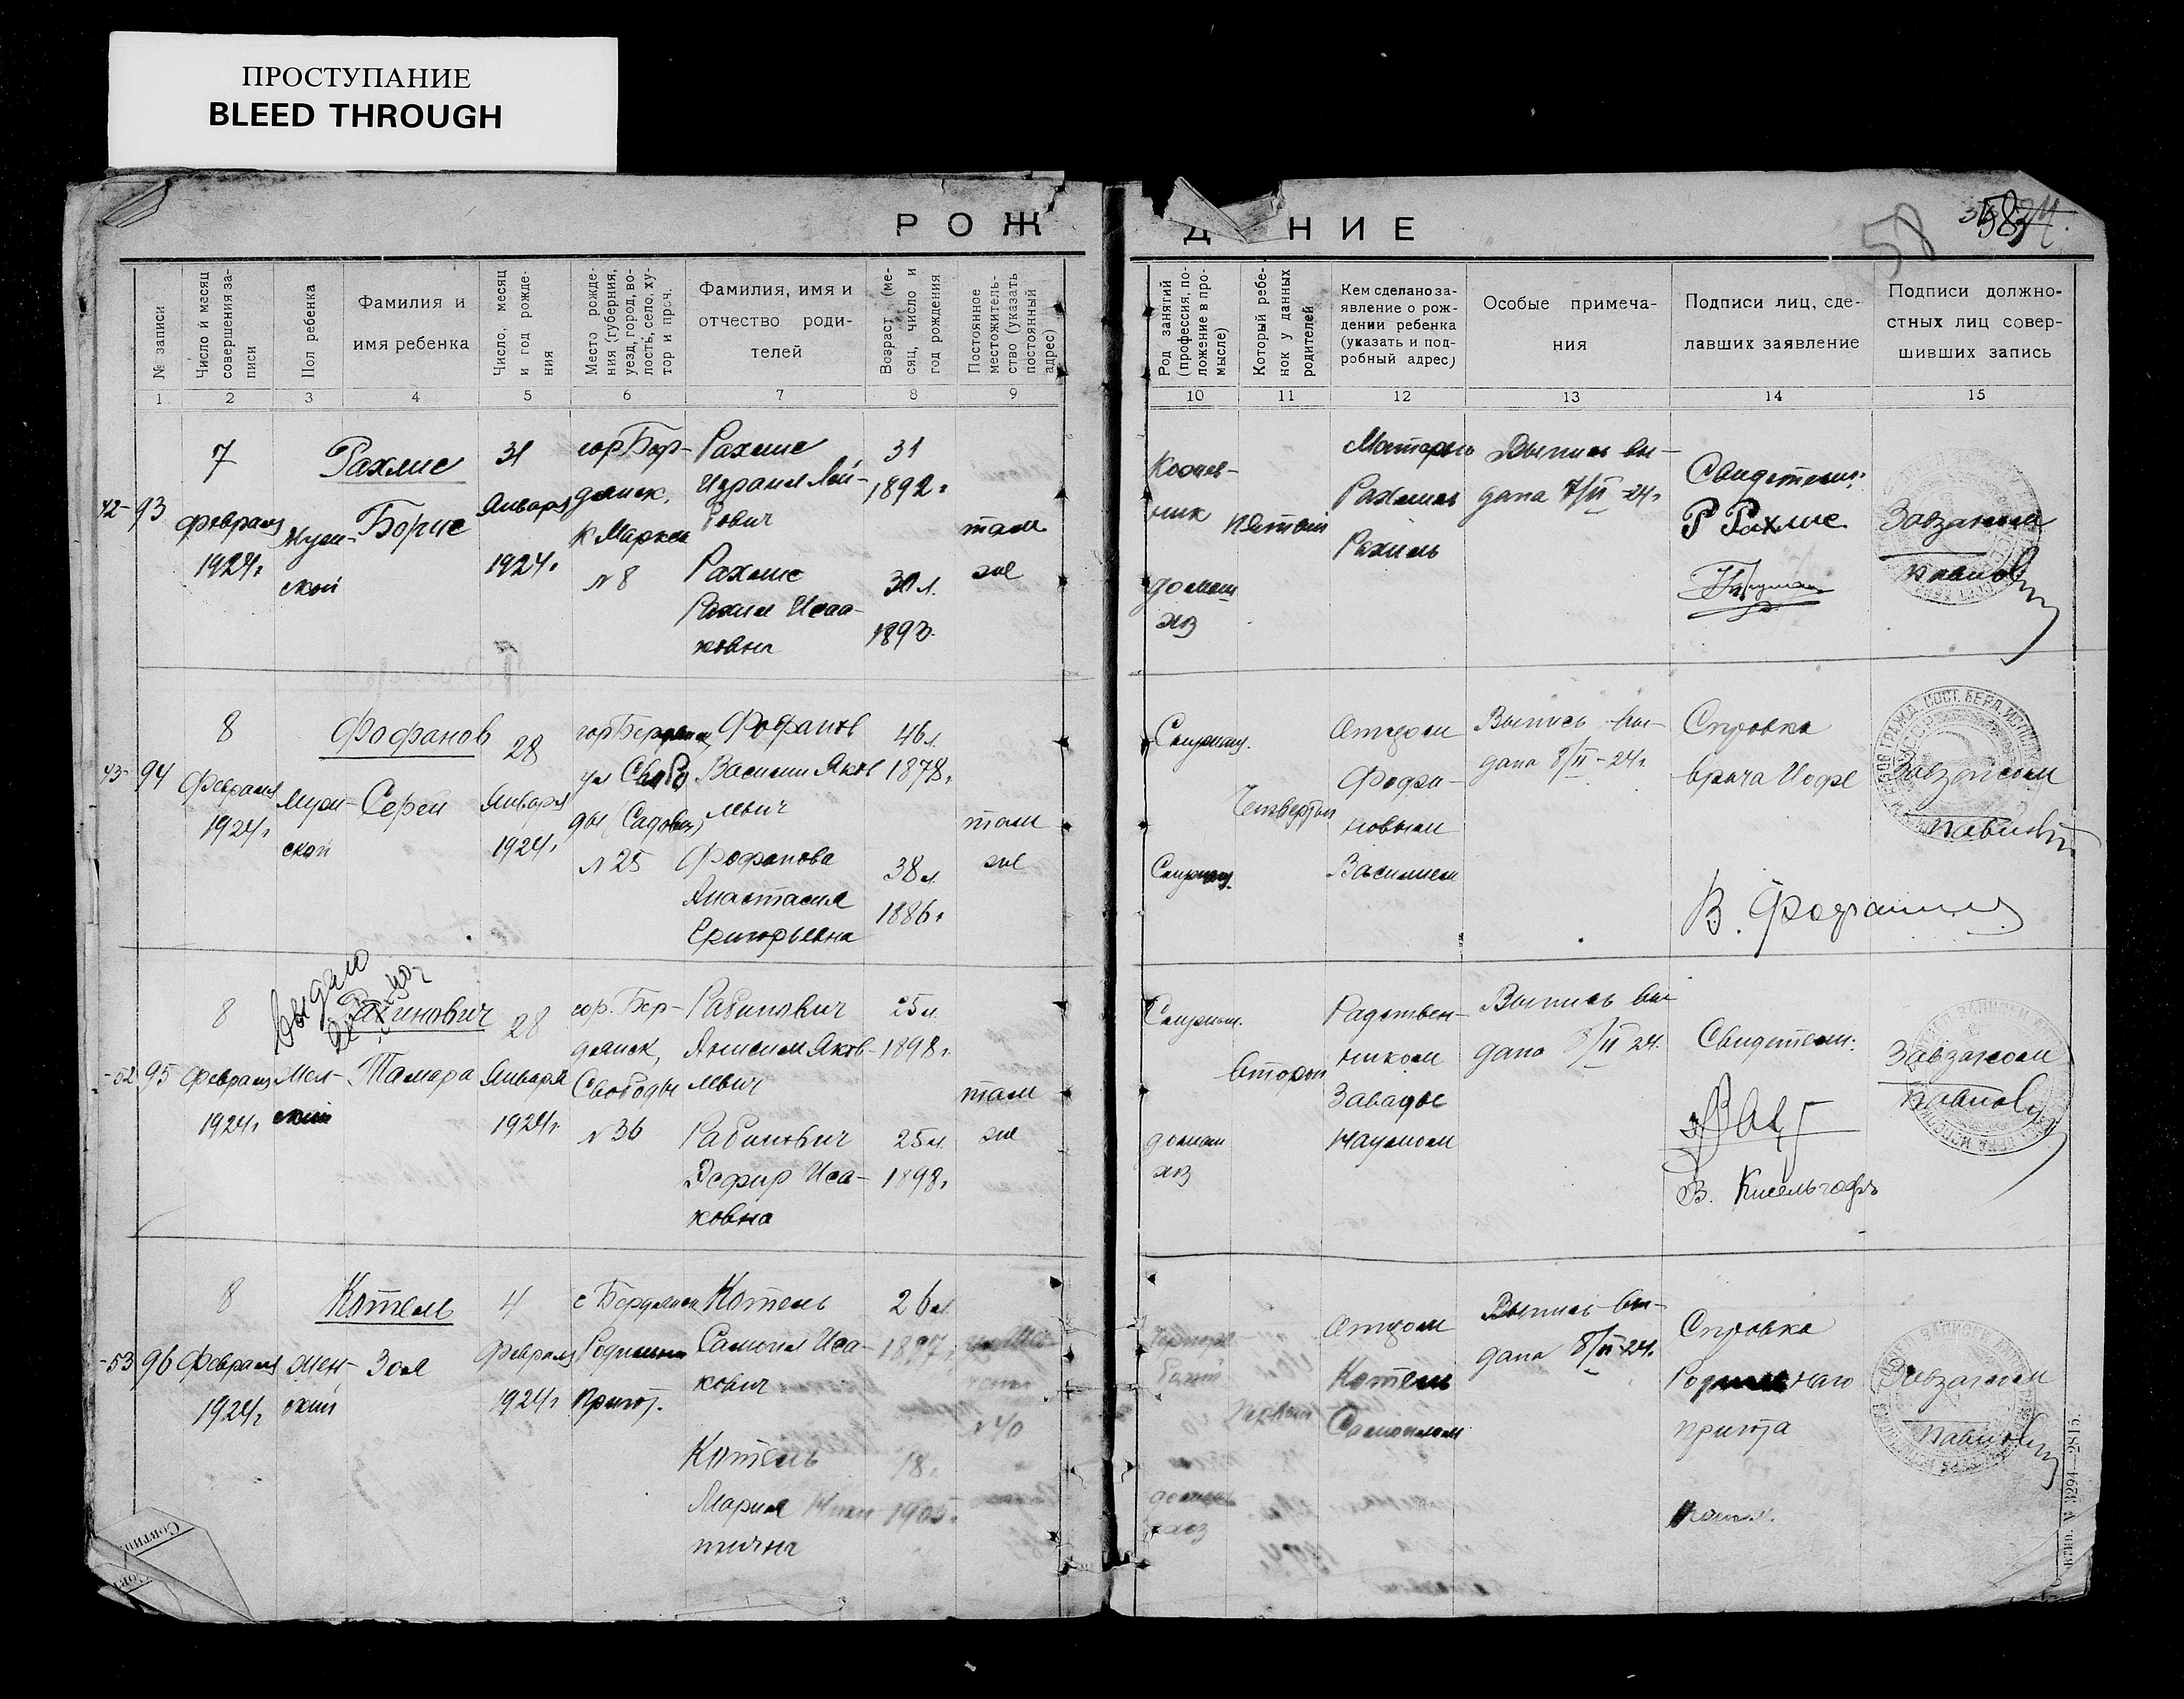 ПРОСТУПАНИЕ
BLEED THROUGH
58
РОЖ
Д НИЕ
№ записи
Число и месяц совершения записи
Пол ребенка
Фамилия и
имя ребенка
Число, месяц и год рождения
Место рождения (губерния, уезд, город, волость, село, хутор и проч.
Фамилия, имя и
отчество роди-
телей
Возраст (месяц, число и год рождения
Постоянное местожительство (указать постоянный адрес)
Род занятий (профессия, положение в промысле)
Который ребенок у данных родителей
Кем сделано за-
явление о рож-
дении ребенка
(указать и под-
робный адрес)
Особые примеча-
ния
Подписи лиц, сде-
лавших заявление
Подписи должно-
стных лиц совер-
шивших запись
1 2 3 4 5 6 7 8 9 10 11 12 13 14 15
42-
93
7
февраля
1924г
Муж-
ской
Рахлис
Борис
31
Января
1924г
гор Бер-
дянск,
К Маркса
№ 8
Рахлис
Израил Лей-
бович
Рахлис
Рахил Исаа-
ковна
31
1892г
30 л.
1893
там
же
домаш
хоз
пятый
Матерью
Рахлис
Рахиль
Выпись вы-
дана 7/II-24г
Свидетели:
Р Рахлис
Завзагсом
43-
94
8
Февраля
1924г
Муж-
ской
Фофанов
28
Января
1924г
гор Бердянск
ул Свобо
ды (Садовая)
№ 25
Фофанов
Василий Яков
левич
Фофанова
Анастасия
Григорьевна
46л
1878г
38л
1886г
там
же
Четвертый
Отцом
Фофа-
новым
Василием
Выпись вы-
дана 8/II-24г
Справка
врача Иофе
В. Фофанов
Завзагсом
-52
95
8
Февраля
1924г
Жен-
ский
Выдано
Рабинович
Тамара
28
Января
1924г
гор. Бер-
дянск,
Свободы
№ 36
Рабинович
Анисим Яков-
левич
Рабинович
Эсфир Иса-
ковна
25л
1898г
25л
1898г
там
же
домаш
хоз
второй
Родствен-
ником
Завадье
Наумом
Выпись вы
дана 8/II 24
Свидетели:
В. Кисельгофъ
Завзагсом
-53
96
8
Февраля
1924г
жен-
ский
Котель
Зоя
4
Февраля
1924г
г Бердянск
Родильн
Приют.
Котель
Самоил Иса-
кович
Котель
Мария
26л
1897г
18г
1905г
№ 40
Первый
домаш
хоз
Отцом
Котель
Самоилом
Выпись вы-
дана 8/II-24г
Справка
Родильнаго
приюта
Завзагсом
№ 3294—2815.